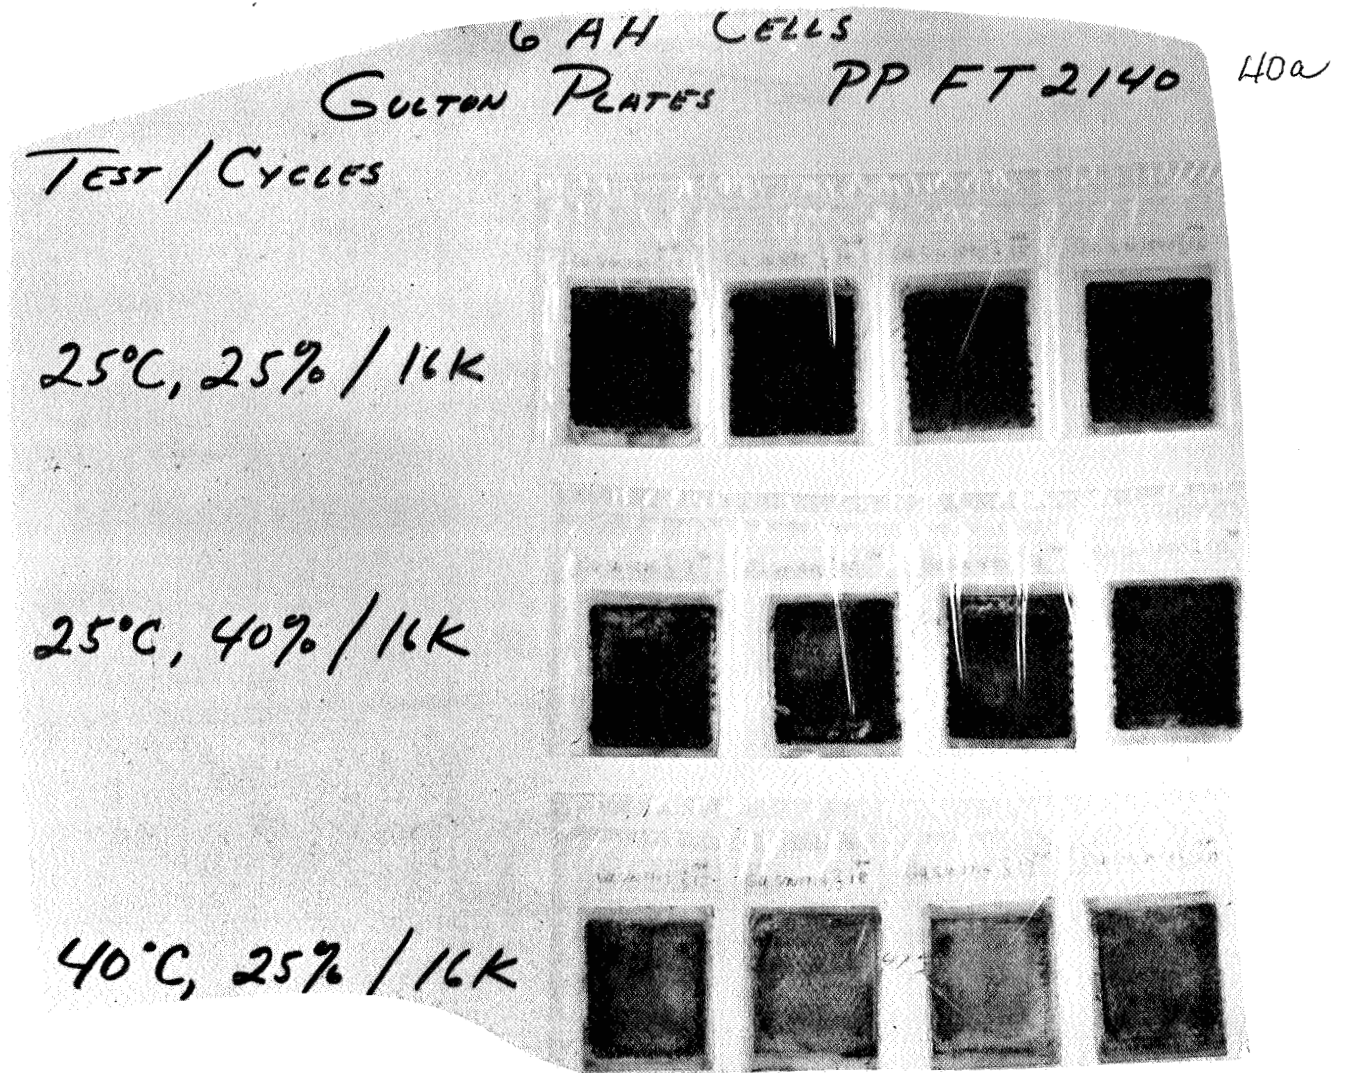 6 AH CELLS
GULTON PLATES PP FT 2140
40a
TEST/CYCLES
25°C, 25% / 16K
25°C, 40% / 16K
40°C, 25% / 16K